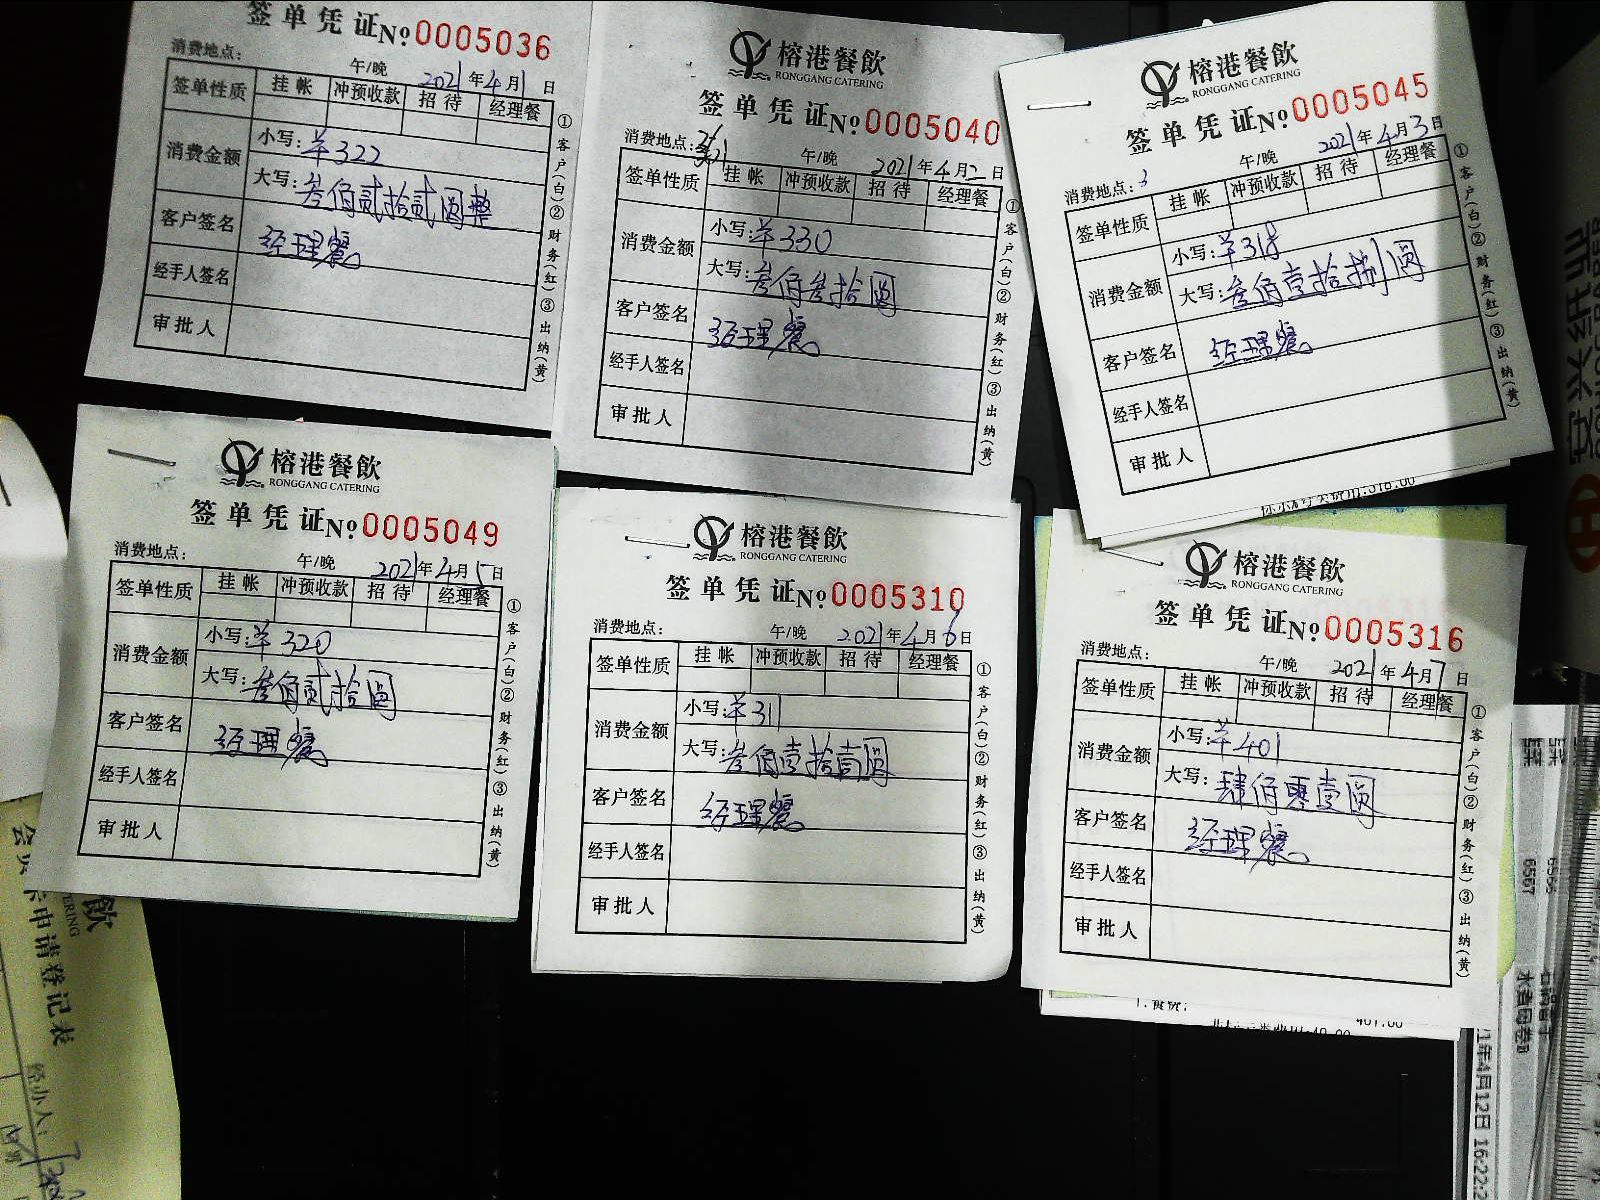 签单凭证No 0005036
消费地点: 午/晚 2021年4月1日
签单性质 挂帐 冲预收款 招待 经理餐
消费金额 小写: 羊322
大写: 叁佰贰拾贰圆整
客户签名 经理餐
经手人签名
审批人
①客户(白)②财务(红)③出纳(黄)
榕港餐飲
RONGGANG CATERING
签单凭证No 0005040
消费地点: 午/晚 2021年4月2日
签单性质 挂帐 冲预收款 招待 经理餐
消费金额 小写: 羊330
大写: 叁佰叁拾圆
客户签名 经理餐
经手人签名
审批人
①客户(白)②财务(红)③出纳(黄)
榕港餐飲
RONGGANG CATERING
签单凭证No 0005045
消费地点: 3 午/晚 2021年4月3日
签单性质 挂帐 冲预收款 招待 经理餐
消费金额 小写: 羊318
大写: 叁佰壹拾捌圆
客户签名 经理餐
经手人签名
审批人
①客户(白)②财务(红)③出纳(黄)
榕港餐飲
RONGGANG CATERING
签单凭证No 0005049
消费地点: 午/晚 2021年4月5日
签单性质 挂帐 冲预收款 招待 经理餐
消费金额 小写: 羊320
大写: 叁佰贰拾圆
客户签名 经理餐
经手人签名
审批人
①客户(白)②财务(红)③出纳(黄)
榕港餐飲
RONGGANG CATERING
签单凭证No 0005310
消费地点: 午/晚 2021年4月6日
签单性质 挂帐 冲预收款 招待 经理餐
消费金额 小写: 羊311
大写: 叁佰壹拾壹圆
客户签名 经理餐
经手人签名
审批人
①客户(白)②财务(红)③出纳(黄)
榕港餐飲
RONGGANG CATERING
签单凭证No 0005316
消费地点: 午/晚 2021年4月7日
签单性质 挂帐 冲预收款 招待 经理餐
消费金额 小写: 羊401
大写: 肆佰零壹圆
客户签名 经理餐
经手人签名
审批人
①客户(白)②财务(红)③出纳(黄)
飲
申请登记表
经办人:
1年4月12日 16:22:2